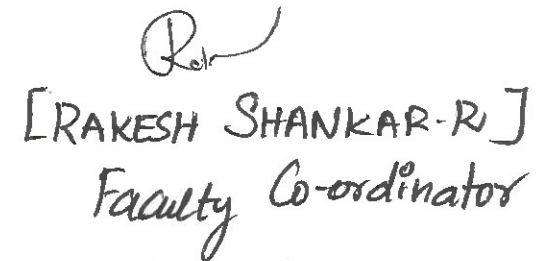 [RAKESH SHANKAR-R]
Faculty Co-ordinator